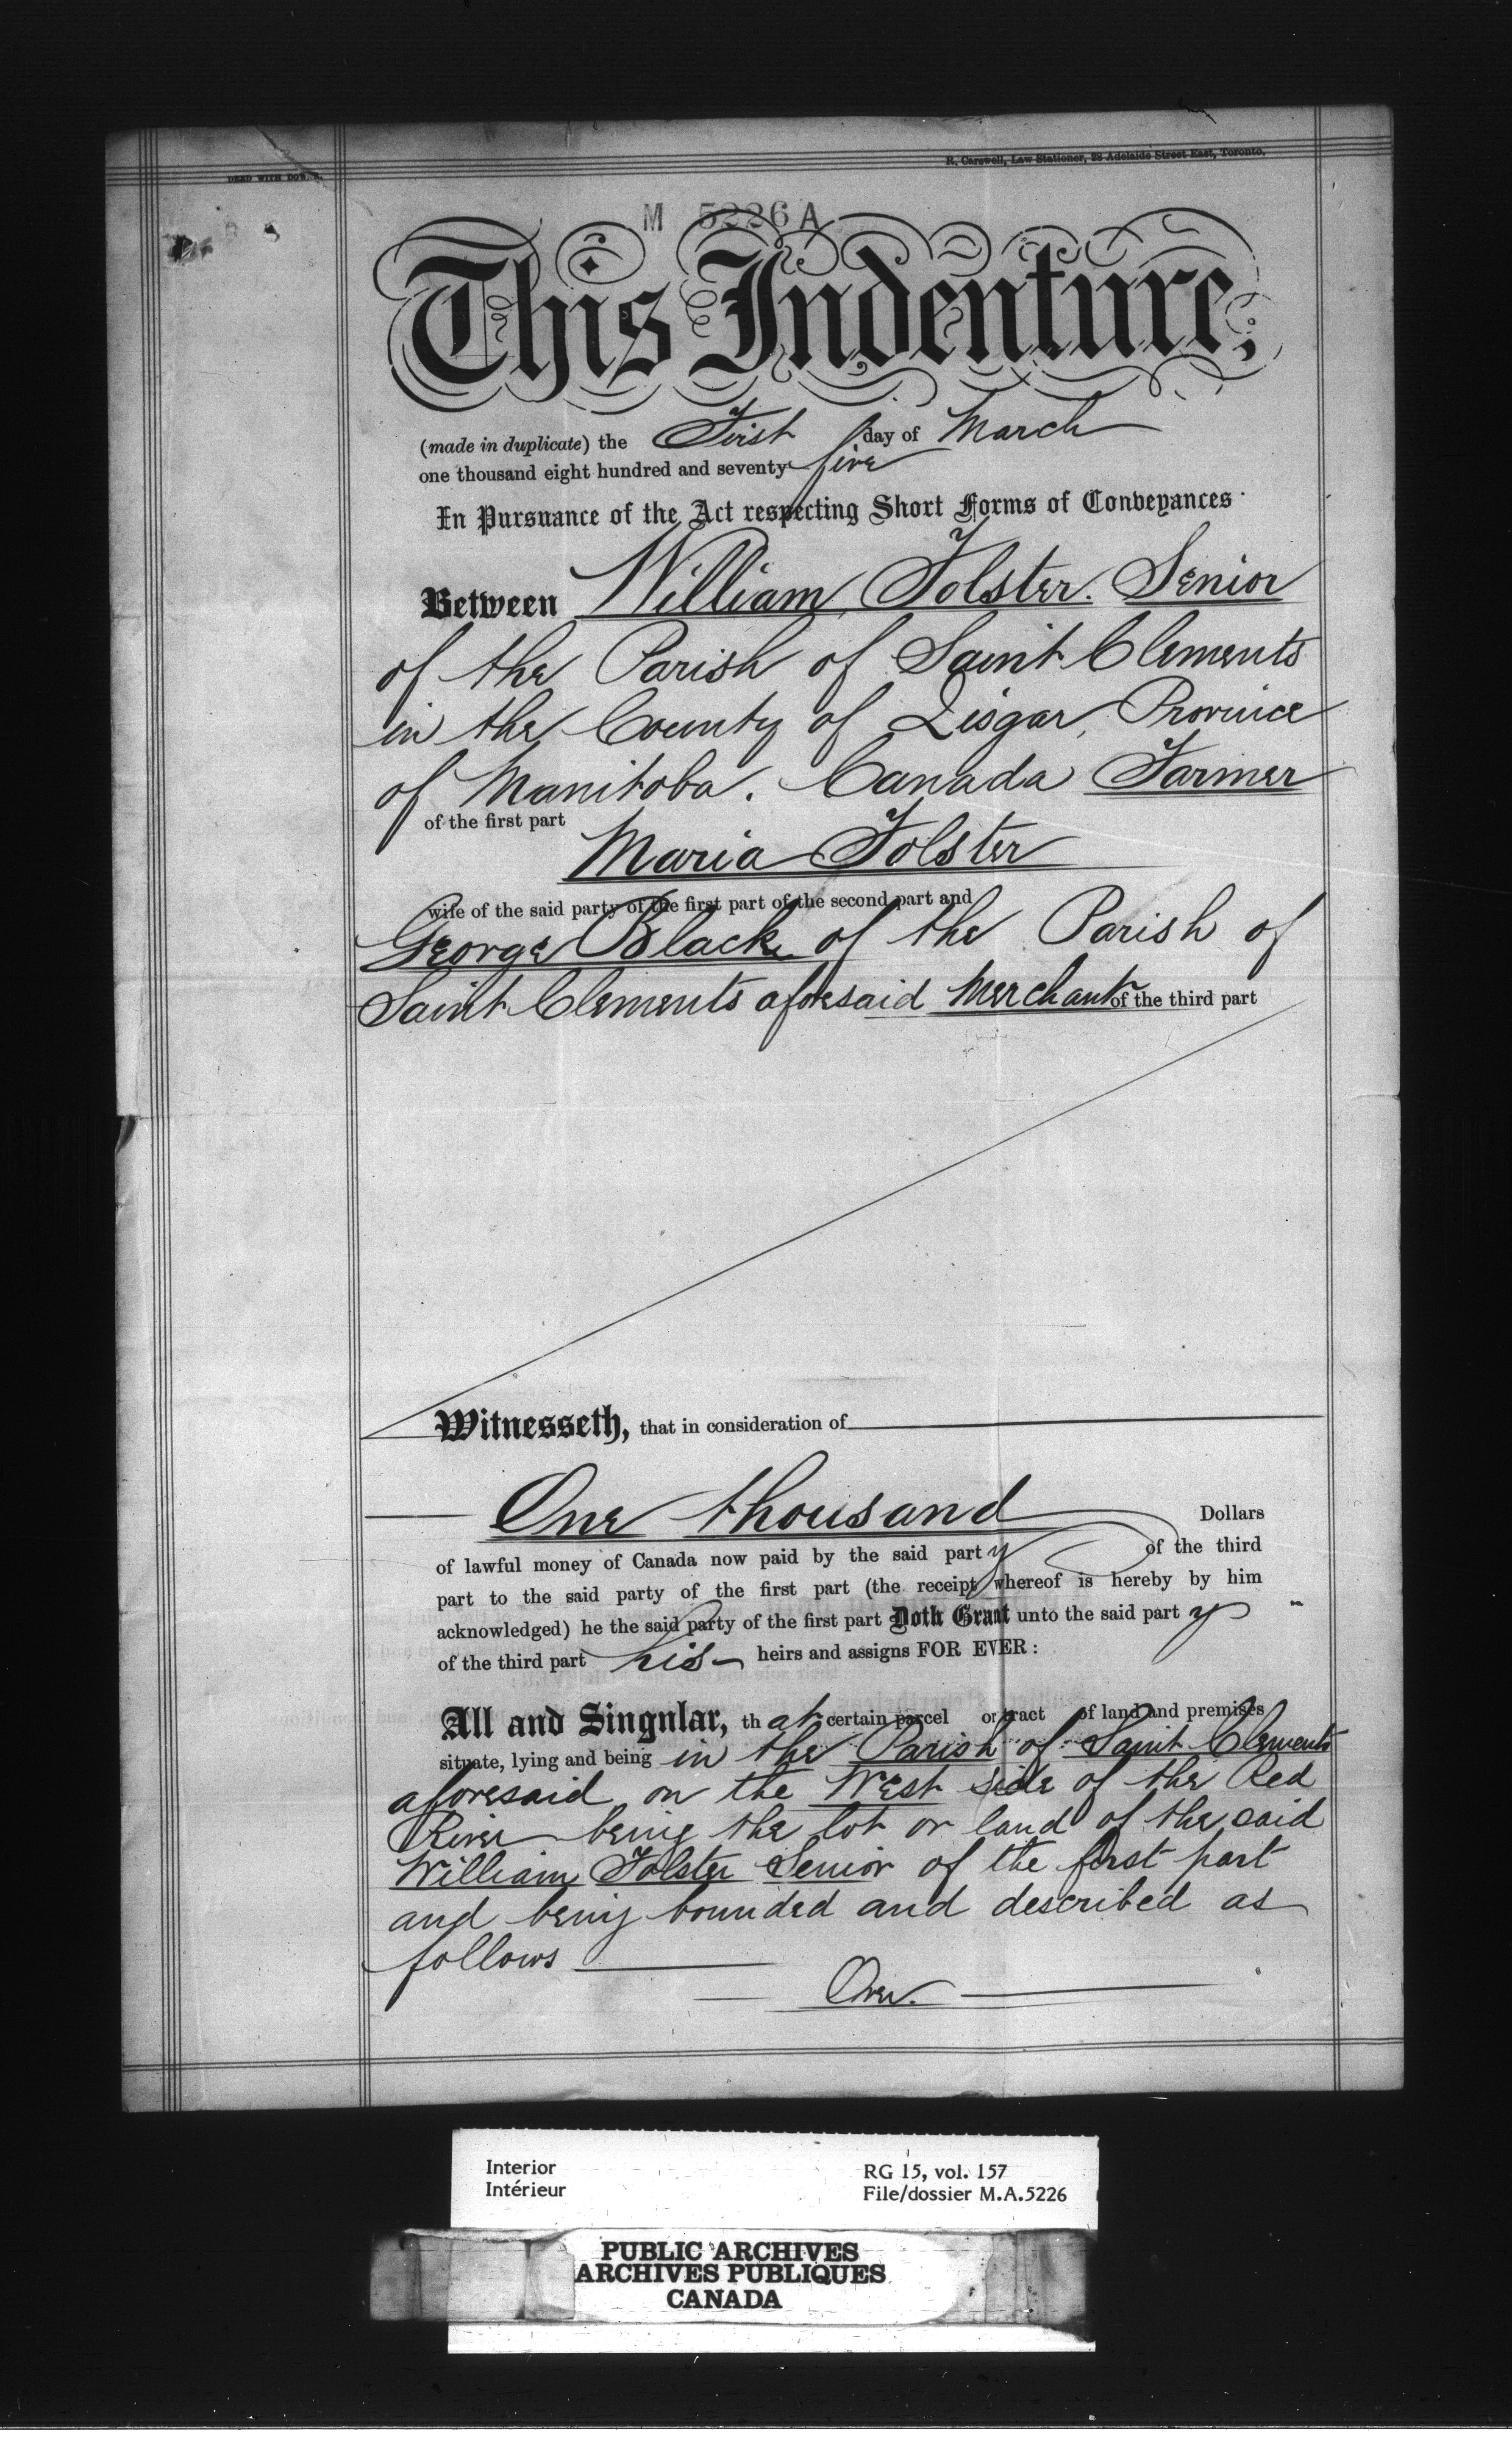 R. Carswell, Law Stationer, 28 Adelaide Street East, Toronto.
DEED WITH DOWER.
M 5226 A
This Indenture,
(made in duplicate) the First day of March
one thousand eight hundred and seventy five
In Pursuance of the Act respecting Short Forms of Conveyances
Between William Folster. Senior
of the Parish of Saint Clements
in the County of Lisgar, Province
of Manitoba. Canada Farmer
of the first part
Maria Folster
wife of the said party of the first part of the second part and
George Black of the Parish of
Saint Clements aforesaid Merchant of the third part
Witnesseth, that in consideration of
One thousand Dollars
of lawful money of Canada now paid by the said party of the third
part to the said party of the first part (the receipt whereof is hereby by him
acknowledged) he the said party of the first part Doth Grant unto the said party
of the third part his heirs and assigns FOR EVER :
All and Singular, that certain parcel or tract of land and premises
situate, lying and being in the Parish of Saint Clements
aforesaid on the West side of the Red
River being the lot or land of the said
William Folster Senior of the first part
and being bounded and described as
follows
Over.
Interior
Intérieur
RG 15, vol. 157
File/dossier M.A.5226
PUBLIC ARCHIVES
ARCHIVES PUBLIQUES
CANADA